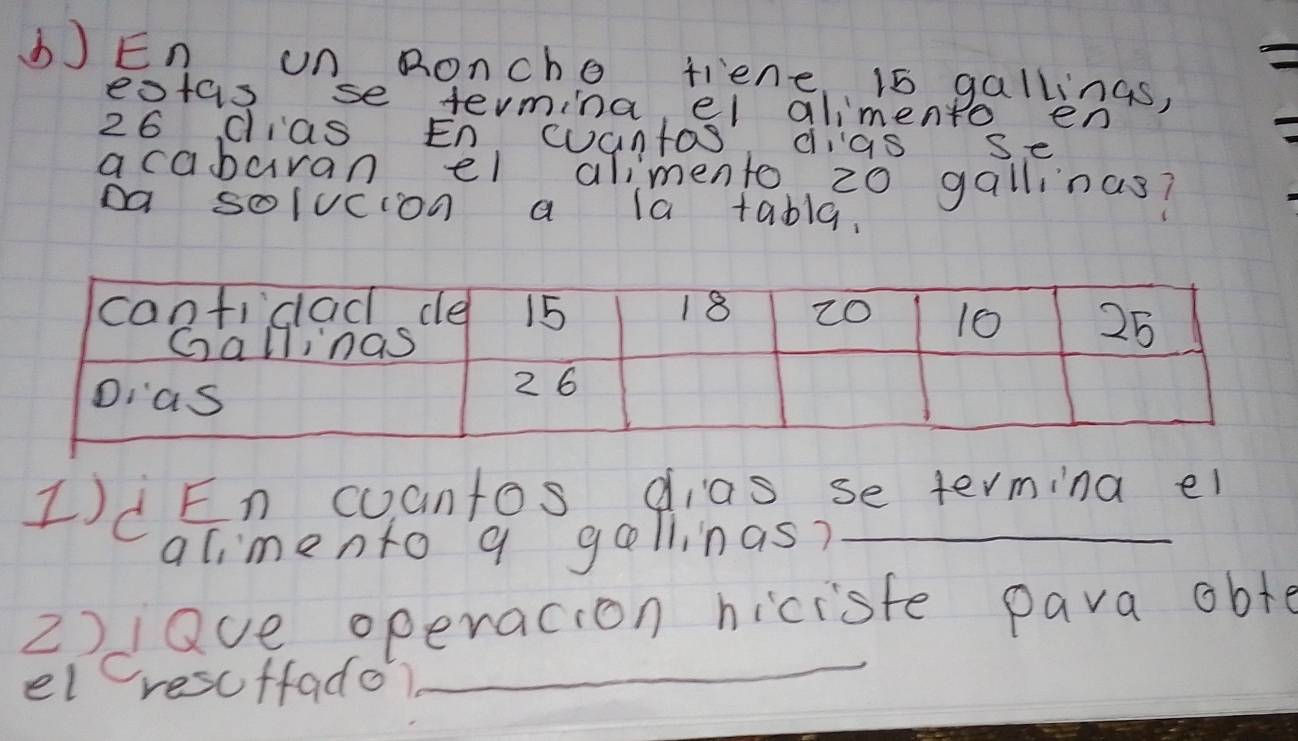 b) En un Roncho tiene 15 gallinas,
estas se termina el alimento en
26 dias En cuantas dias se
acabaran el alimento 20 gallinas?
Da solucion a la tabla.
cantidad de Gallinas 15 18 20 10 25
Dias 26
1) ¿En cuantos dias se termina el
alimento 9 gallinas?
2) ¿Que operacion hiciste para obte
el resultado?